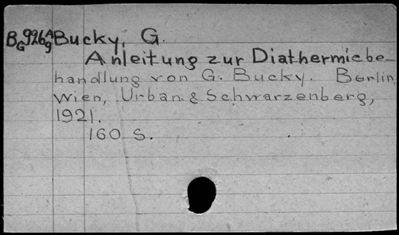 BG996A9 Bucky, G.
Anleitung zur Diathermiebe-
handlung von G. Bucky. Berlin,
Wien, Urban & Schwarzenberg,
1921.
160 S.